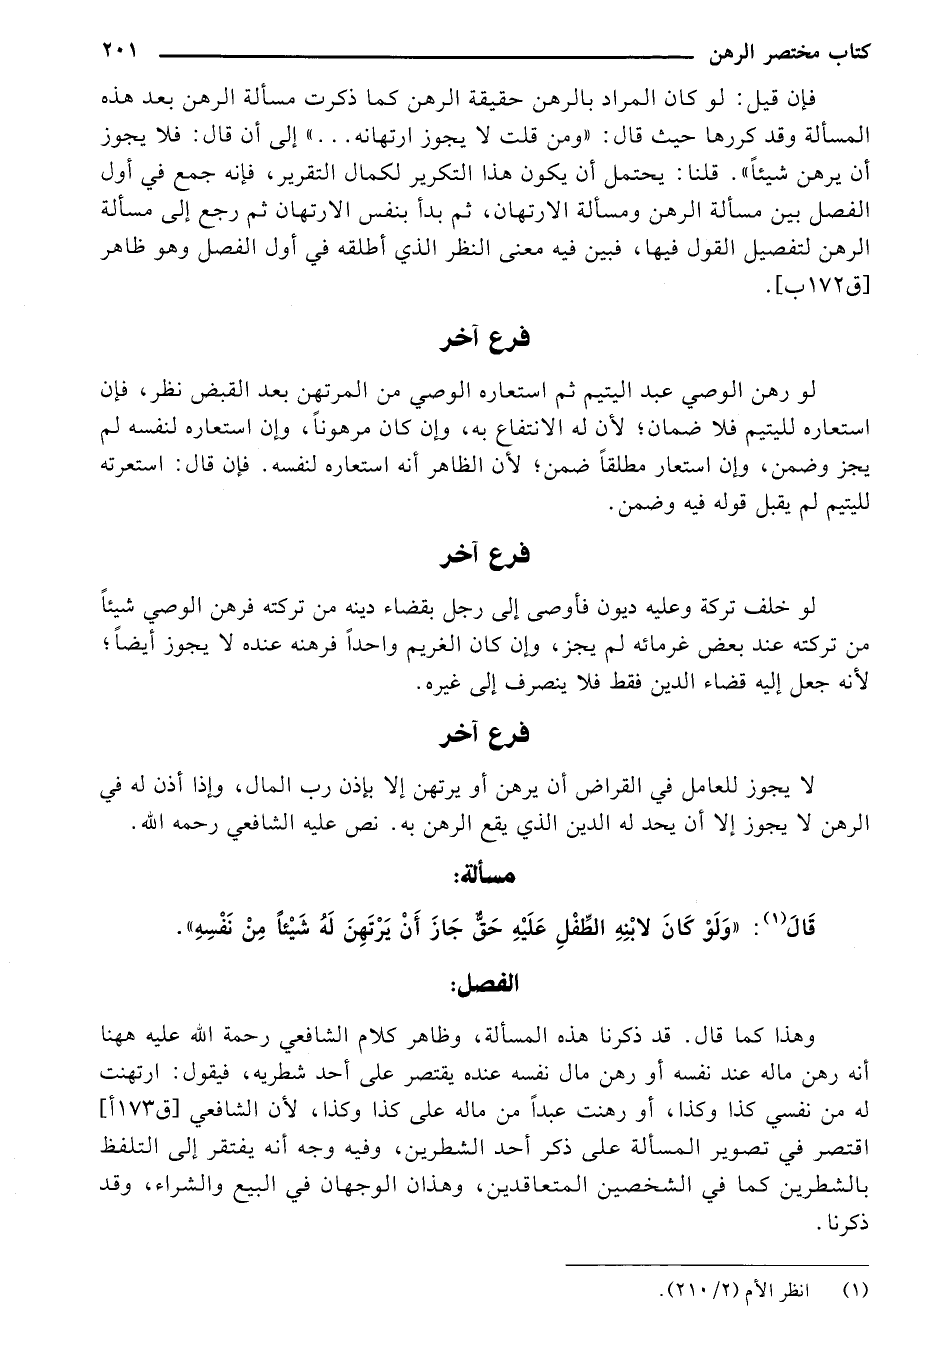 كتاب مختصر الرهن ٢٠١
فإن قيل: لو كان المراد بالرهن حقيقة الرهن كما ذكرت مسألة الرهن بعد هذه
المسألة وقد كررها حيث قال: «ومن قلت لا يجوز ارتهانه...» إلى أن قال: فلا يجوز
أن يرهن شيئاً». قلنا: يحتمل أن يكون هذا التكرير لكمال التقرير، فإنه جمع في أول
الفصل بين مسألة الرهن ومسألة الارتهان، ثم بدأ بنفس الارتهان ثم رجع إلى مسألة
الرهن لتفصيل القول فيها، فبين فيه معنى النظر الذي أطلقه في أول الفصل وهو ظاهر
[ق١٧٢ب].
فرع آخر
لو رهن الوصي عبد اليتيم ثم استعاره الوصي من المرتهن بعد القبض نظر، فإن
استعاره لليتيم فلا ضمان؛ لأن له الانتفاع به، وإن كان مرهوناً، وإن استعاره لنفسه لم
يجز وضمن، وإن استعار مطلقاً ضمن؛ لأن الظاهر أنه استعاره لنفسه. فإن قال: استعرته
لليتيم لم يقبل قوله فيه وضمن.
فرع آخر
لو خلف تركة وعليه ديون فأوصى إلى رجل بقضاء دينه من تركته فرهن الوصي شيئاً
من تركته عند بعض غرمائه لم يجز، وإن كان الغريم واحداً فرهنه عنده لا يجوز أيضاً؛
لأنه جعل إليه قضاء الدين فقط فلا ينصرف إلى غيره.
فرع آخر
لا يجوز للعامل في القراض أن يرهن أو يرتهن إلا بإذن رب المال، وإذا أذن له في
الرهن لا يجوز إلا أن يحد له الدين الذي يقع الرهن به. نص عليه الشافعي رحمه الله.
مسألة:
قَالَ(١): «وَلَوْ كَانَ لابْنِهِ الطِّفْلِ عَلَيْهِ حَقٌّ جَازَ أَنْ يَرْتَهِنَ لَهُ شَيْئاً مِنْ نَفْسِهِ».
الفصل:
وهذا كما قال. قد ذكرنا هذه المسألة، وظاهر كلام الشافعي رحمة الله عليه ههنا
أنه رهن ماله عند نفسه أو رهن مال نفسه عنده يقتصر على أحد شطريه، فيقول: ارتهنت
له من نفسي كذا وكذا، أو رهنت عبداً من ماله على كذا وكذا، لأن الشافعي [ق١٧٣أ]
اقتصر في تصوير المسألة على ذكر أحد الشطرين، وفيه وجه أنه يفتقر إلى التلفظ
بالشطرين كما في الشخصين المتعاقدين، وهذان الوجهان في البيع والشراء، وقد
ذكرنا.
(١) انظر الأم (٢/ ٢١٠).